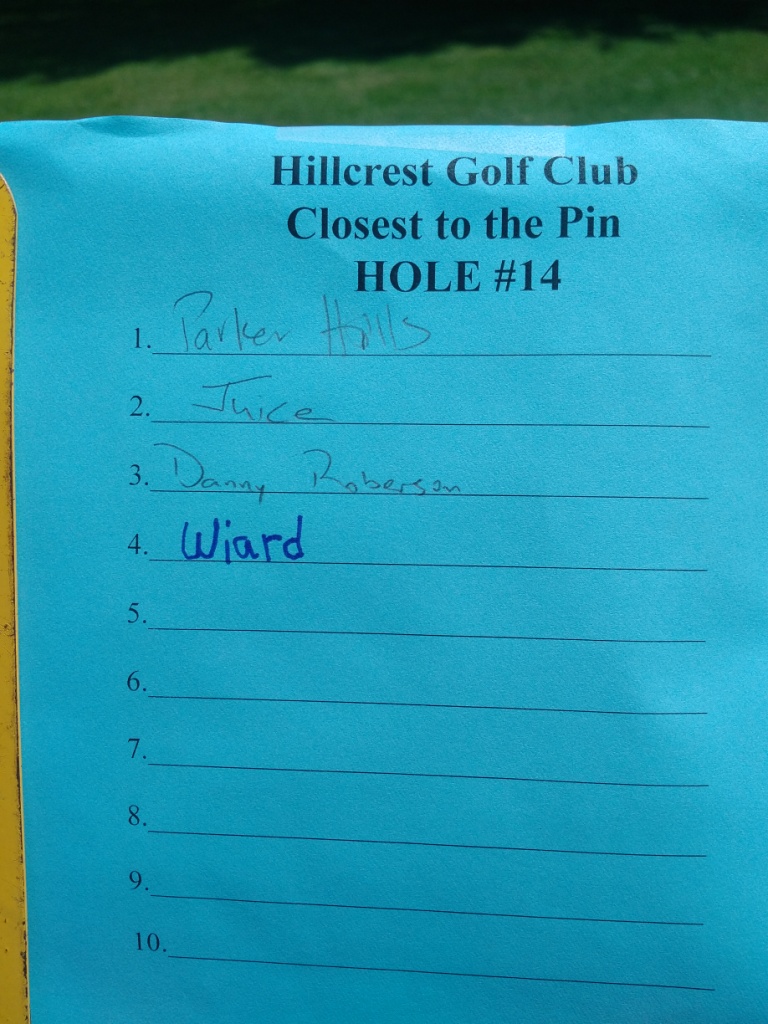 Hillcrest Golf Club
Closest to the Pin
HOLE #14
1. Parker Hills
2. Juice
3. Danny Roberson
4. Wiard
5.
6.
7.
8.
9.
10.